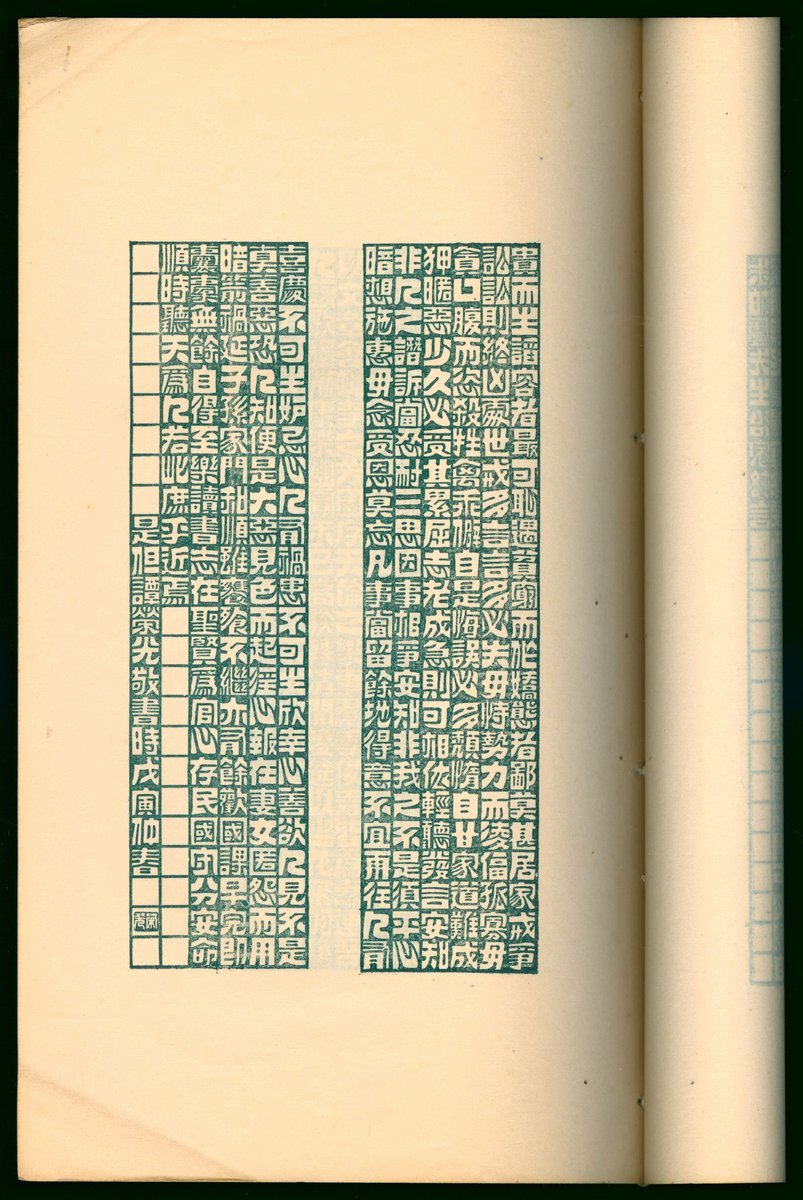 貴而生諂容者最可恥遇貧窮而作嬌態者鄙莫甚居家戒爭
訟訟則終凶處世戒多言言多必失毋恃勢力而凌偪孤寡毋
貪口腹而恣殺牲禽乖僻自是悔誤必多頹惰自甘家道難成
狎暱惡少久必受其累屈志老成急則可相依輕聽發言安知
非人之譖訴當忍耐三思因事相爭安知非我之不是須平心
暗想施惠毋念受恩莫忘凡事當留餘地得意不宜再往人有
喜慶不可生妒忌心人有禍患不可生欣幸心善欲人見不是
真善惡恐人知便是大惡見色而起淫心報在妻女匿怨而用
暗箭禍延子孫家門和順雖饔飧不繼亦有餘歡國課早完即
囊橐無餘自得至樂讀書志在聖賢爲宦心存民國守分安命
順時聽天爲人若此庶乎近焉
是但譚榮光敬書時戊寅仲春